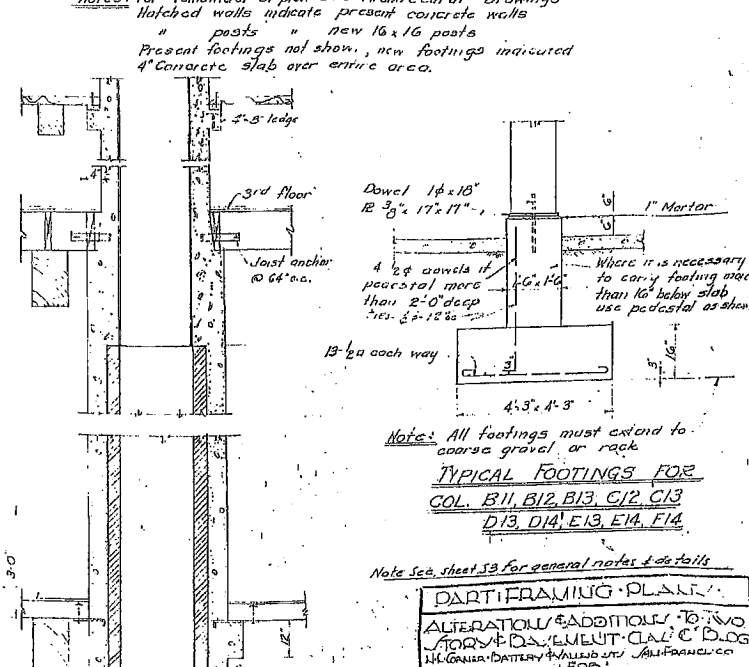 Notes: For remainder of plan see Architectural Drawings
Hatched walls indicate present concrete walls
" posts " new 16 x 16 posts
Present footings not show., new footings indicated
4" Concrete slab over entire area.
ledge
4"
3rd floor
Joist anchor
@ 64" o.c.
3'-0"
12"
Dowel 1ϕ x 18"
3/8" x 17" x 17"
6"
6"
1" Mortar
4 ½ϕ dowels if
pedestal more
than 2'-0" deep
1'-6" x 1'-6"
Where it is necessary
to carry footing more
than 16" below slab
use pedestal as show
13-½ϕ each way
3"
3"
16"
4'-3" x 4'-3"
Note: All footings must extend to
coarse gravel or rock
TYPICAL FOOTINGS FOR
COL. B11, B12, B13, C12, C13
D13, D14, E13, E14, F14
Note See sheet S3 for general notes & details
PART FRAMING PLANS
ALTERATIONS & ADDITIONS TO TWO
STORY & BASEMENT CLASS C BLDG
CORNER BATTERY & STS SAN FRANCISCO
FOR